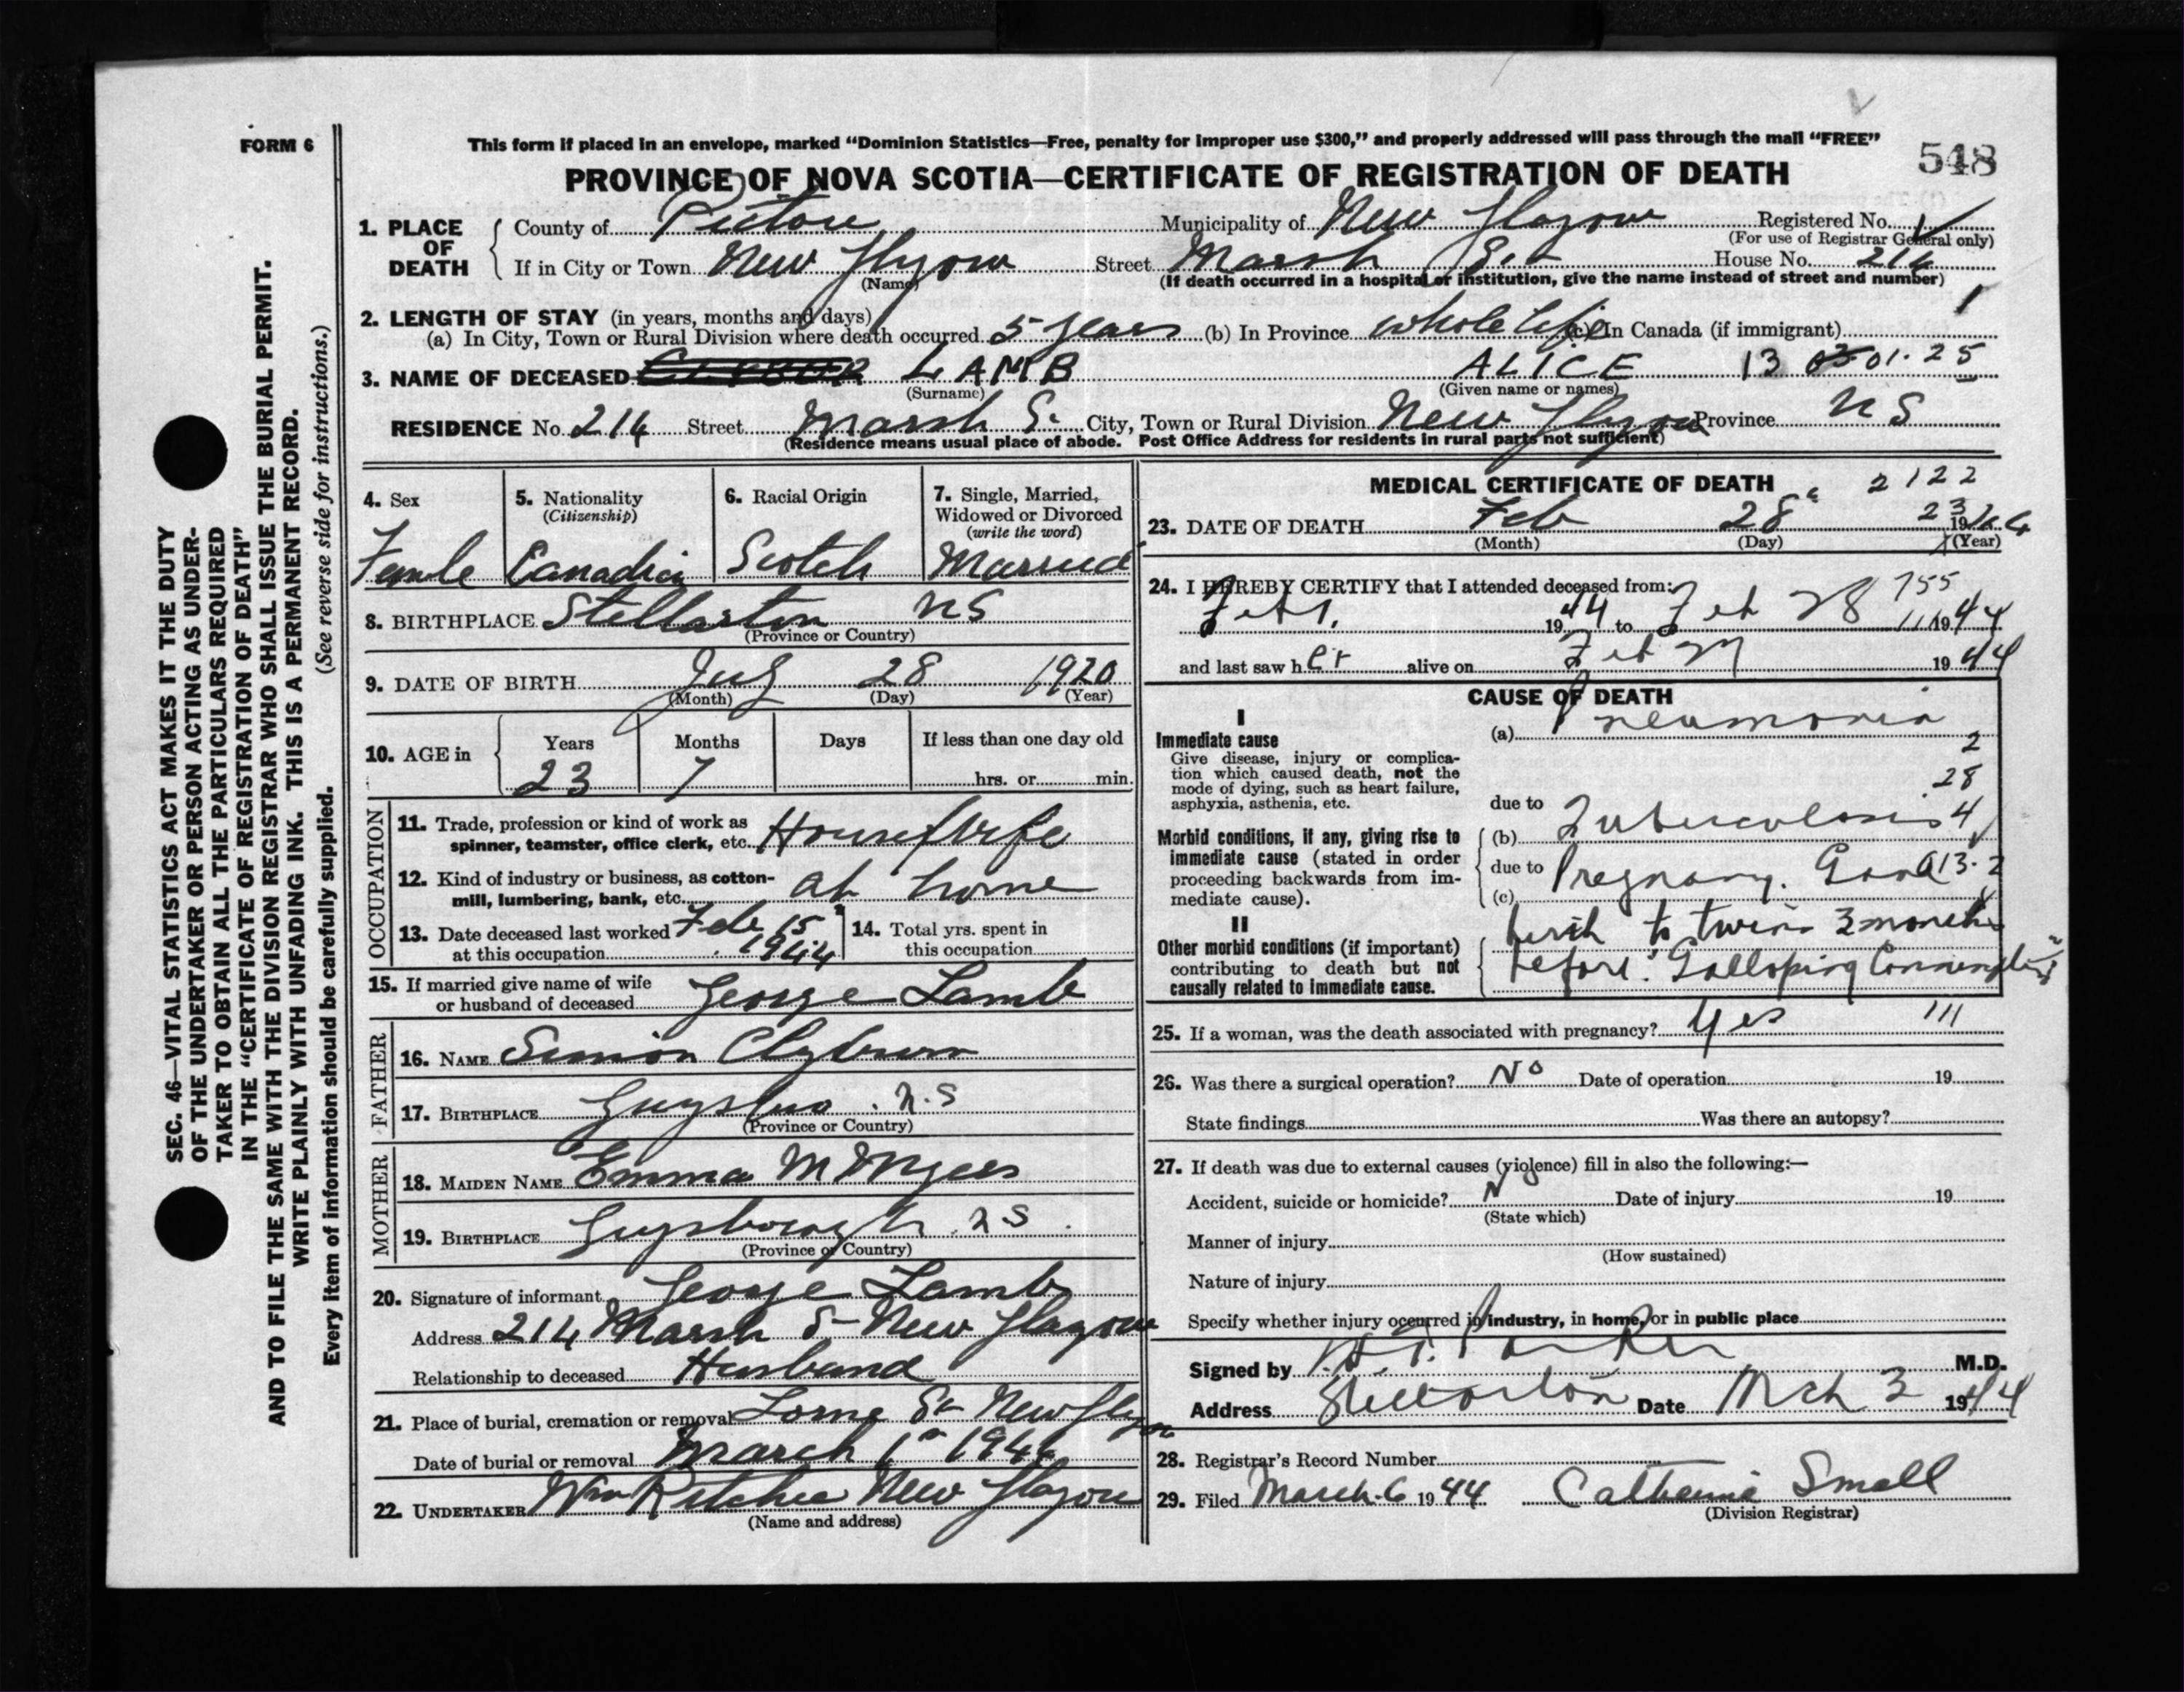 FORM 6
This form if placed in an envelope, marked “Dominion Statistics—Free, penalty for improper use $300,” and properly addressed will pass through the mail “FREE”
548
PROVINCE OF NOVA SCOTIA—CERTIFICATE OF REGISTRATION OF DEATH
1. PLACE OF DEATH
County of Pictou Municipality of New Glagow Registered No.
(For use of Registrar General only)
If in City or Town New Glagow Street Marsh St House No. 214
(Name) (If death occurred in a hospital or institution, give the name instead of street and number)
2. LENGTH OF STAY (in years, months and days)
(a) In City, Town or Rural Division where death occurred 5 years (b) In Province whole life (c) In Canada (if immigrant)
3. NAME OF DECEASED LAMB ALICE 13 01.25
(Surname) (Given name or names)
RESIDENCE No. 214 Street Marsh S. City, Town or Rural Division New Glagow Province N S
(Residence means usual place of abode. Post Office Address for residents in rural parts not sufficient)
4. Sex 5. Nationality (Citizenship) 6. Racial Origin 7. Single, Married, Widowed or Divorced (write the word)
Female Canadian Scotch Married
8. BIRTHPLACE Stellarton NS
(Province or Country)
9. DATE OF BIRTH July 28 1920
(Month) (Day) (Year)
10. AGE in Years Months Days If less than one day old
23 7 hrs. or min.
OCCUPATION
11. Trade, profession or kind of work as
spinner, teamster, office clerk, etc. Housewife
12. Kind of industry or business, as cotton-
mill, lumbering, bank, etc. at home
13. Date deceased last worked Feb 15
at this occupation 1944
14. Total yrs. spent in
this occupation
15. If married give name of wife
or husband of deceased George Lamb
FATHER
16. NAME Simon Clyburn
17. BIRTHPLACE N.S
(Province or Country)
MOTHER
18. MAIDEN NAME Emma M
19. BIRTHPLACE Guysborough NS
(Province or Country)
20. Signature of informant George Lamb
Address 214 Marsh S New Glagow
Relationship to deceased Husband
21. Place of burial, cremation or removal Lorne St New Glagow
Date of burial or removal March 1 1944
22. UNDERTAKER Wm Ritchie New Glagow
(Name and address)
MEDICAL CERTIFICATE OF DEATH 2122
23. DATE OF DEATH Feb 28 23 1944
(Month) (Day) (Year)
24. I HEREBY CERTIFY that I attended deceased from: 755
Feb 1, 1944 to Feb 28 1944
and last saw her alive on Feb 27 1944
CAUSE OF DEATH
I
Immediate cause (a) Pneumonia
Give disease, injury or complica-
tion which caused death, not the
mode of dying, such as heart failure,
asphyxia, asthenia, etc.
2
28
4
due to
Morbid conditions, if any, giving rise to
immediate cause (stated in order
proceeding backwards from im-
mediate cause).
(b) Tuberculosis
due to
(c) Pregnancy. Gave 13.2
II
Other morbid conditions (if important)
contributing to death but not
causally related to immediate cause.
birth to twins 3 months
before. "Galloping Consumption"
25. If a woman, was the death associated with pregnancy? Yes 111
26. Was there a surgical operation? No Date of operation 19
State findings Was there an autopsy?
27. If death was due to external causes (violence) fill in also the following:—
Accident, suicide or homicide? No Date of injury 19
(State which)
Manner of injury
(How sustained)
Nature of injury
Specify whether injury occurred in industry, in home, or in public place
Signed by Parker M.D.
Address Stellarton Date Mch 3 1944
28. Registrar's Record Number
29. Filed March 6 1944 Catherine Small
(Division Registrar)
SEC. 46—VITAL STATISTICS ACT MAKES IT THE DUTY
OF THE UNDERTAKER OR PERSON ACTING AS UNDER-
TAKER TO OBTAIN ALL THE PARTICULARS REQUIRED
IN THE “CERTIFICATE OF REGISTRATION OF DEATH”
AND TO FILE THE SAME WITH THE DIVISION REGISTRAR WHO SHALL ISSUE THE BURIAL PERMIT.
WRITE PLAINLY WITH UNFADING INK. THIS IS A PERMANENT RECORD.
Every item of information should be carefully supplied. (See reverse side for instructions.)